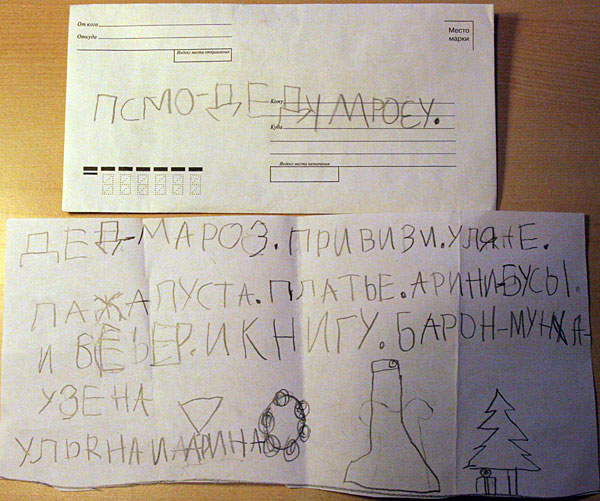 От кого
Откуда
Индекс места отправления
Место
марки
Кому
ПСМО-ДЕДУ МРОЕУ.
Куда
Индекс места назначения
ДЕД-МАРОЗ. ПРИВИЗИ. УЛЯНЕ.
ПАЖАПУСТА. ПЛАТЬЕ. АРИНИ-БУСЫ.
И ВЕЬЕР. И КНИГУ. БАРОН-МУНХА-
УЗЕНА
УЛЬЯНА И АРИНА